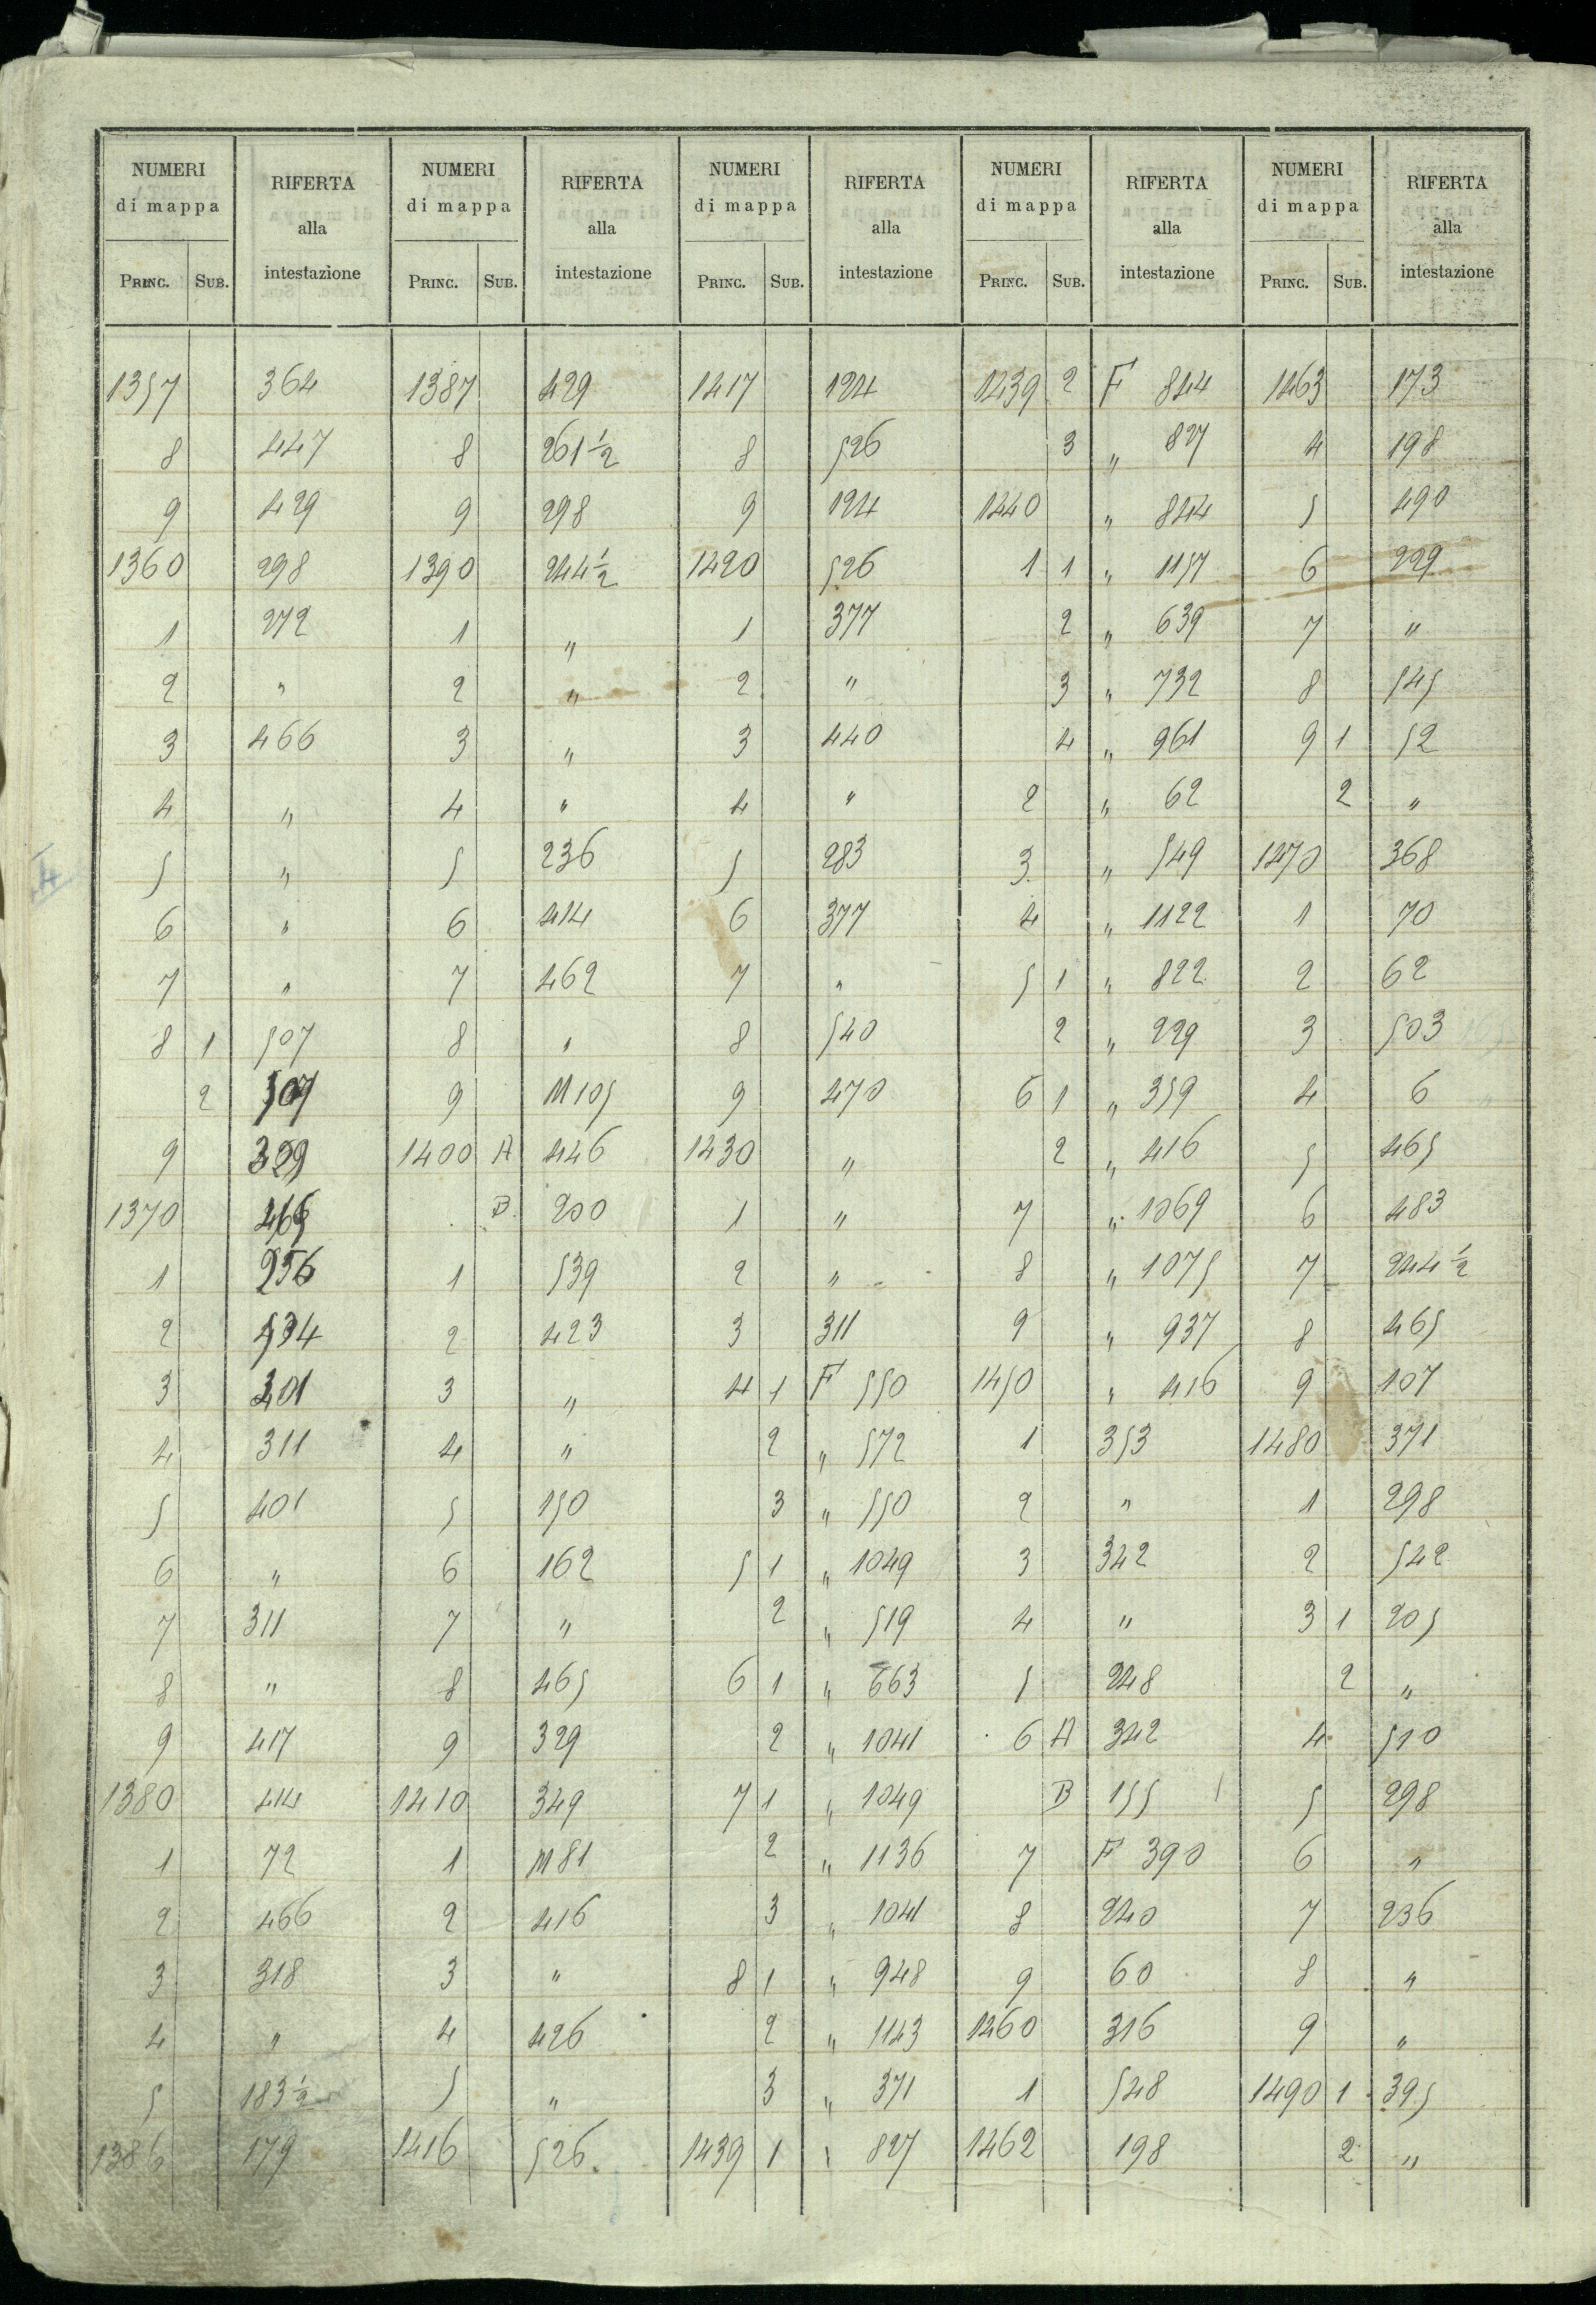 NUMERI di mappa | RIFERTA alla intestazione | NUMERI di mappa | RIFERTA alla intestazione | NUMERI di mappa | RIFERTA alla intestazione | NUMERI di mappa | RIFERTA alla intestazione | NUMERI di mappa | RIFERTA alla intestazione
PRINC. | SUB. | | PRINC. | SUB. | | PRINC. | SUB. | | PRINC. | SUB. | | PRINC. | SUB. |
1357 | | 364 | 1387 | | 429 | 1417 | | 124 | 1439 | 2 | F 844 | 1463 | | 173
8 | | 447 | 8 | | 261 1/2 | 8 | | 526 | | 3 | " 827 | 4 | | 198
9 | | 429 | 9 | | 298 | 9 | | 124 | 1440 | | " 844 | 5 | | 490
1360 | | 298 | 1390 | | 244 1/2 | 1420 | | 526 | 1 | 1 | " 1157 | 6 | | 229
1 | | 272 | 1 | | " | 1 | | 377 | | 2 | " 639 | 7 | | "
2 | | " | 2 | | " | 2 | | " | | 3 | " 732 | 8 | | 545
3 | | 466 | 3 | | " | 3 | | 440 | | 4 | " 961 | 9 | 1 | 52
4 | | " | 4 | | " | 4 | | " | 2 | | " 62 | | 2 | "
5 | | " | 5 | | 236 | 5 | | 283 | 3 | | " 549 | 1470 | | 368
6 | | " | 6 | | 414 | 6 | | 377 | 4 | | " 1122 | 1 | | 70
7 | | " | 7 | | 462 | 7 | | " | 5 | 1 | " 822 | 2 | | 62
8 | 1 | 507 | 8 | | " | 8 | | 540 | | 2 | " 229 | 3 | | 503
| 2 | 507 | 9 | | M 105 | 9 | | 470 | 6 | 1 | " 359 | 4 | | 6
9 | | 329 | 1400 | A | 446 | 1430 | | " | | 2 | " 416 | 5 | | 465
1370 | | 465 | | B | 200 | 1 | | " | 7 | | " 1069 | 6 | | 483
1 | | 256 | 1 | | 539 | 2 | | " | 8 | | " 1075 | 7 | | 244 1/2
2 | | 534 | 2 | | 423 | 3 | | 311 | 9 | | " 937 | 8 | | 465
3 | | 201 | 3 | | " | 4 | 1 | F 550 | 1450 | | " 416 | 9 | | 107
4 | | 311 | 4 | | " | | 2 | " 572 | 1 | | 353 | 1480 | | 371
5 | | 401 | 5 | | 150 | | 3 | " 550 | 2 | | " | 1 | | 298
6 | | " | 6 | | 162 | 5 | 1 | " 1049 | 3 | | 342 | 2 | | 542
7 | | 311 | 7 | | " | | 2 | " 519 | 4 | | " | 3 | 1 | 205
8 | | " | 8 | | 465 | 6 | 1 | " 663 | 5 | | 248 | | 2 | "
9 | | 417 | 9 | | 329 | | 2 | " 1041 | 6 | A | 342 | 4 | | 510
1380 | | 414 | 1410 | | 349 | 7 | 1 | " 1049 | | B | 155 | 5 | | 298
1 | | 72 | 1 | | M 81 | | 2 | " 1136 | 7 | | F 390 | 6 | | "
2 | | 466 | 2 | | 416 | | 3 | " 1041 | 8 | | 240 | 7 | | 236
3 | | 318 | 3 | | " | 8 | 1 | " 948 | 9 | | 60 | 8 | | "
4 | | " | 4 | | 426 | | 2 | " 1143 | 1460 | | 316 | 9 | | "
5 | | 183 1/2 | 5 | | " | | 3 | " 371 | 1 | | 548 | 1490 | 1 | 395
1386 | | 179 | 1416 | | 526 | 1439 | 1 | " 827 | 1462 | | 198 | | 2 | "